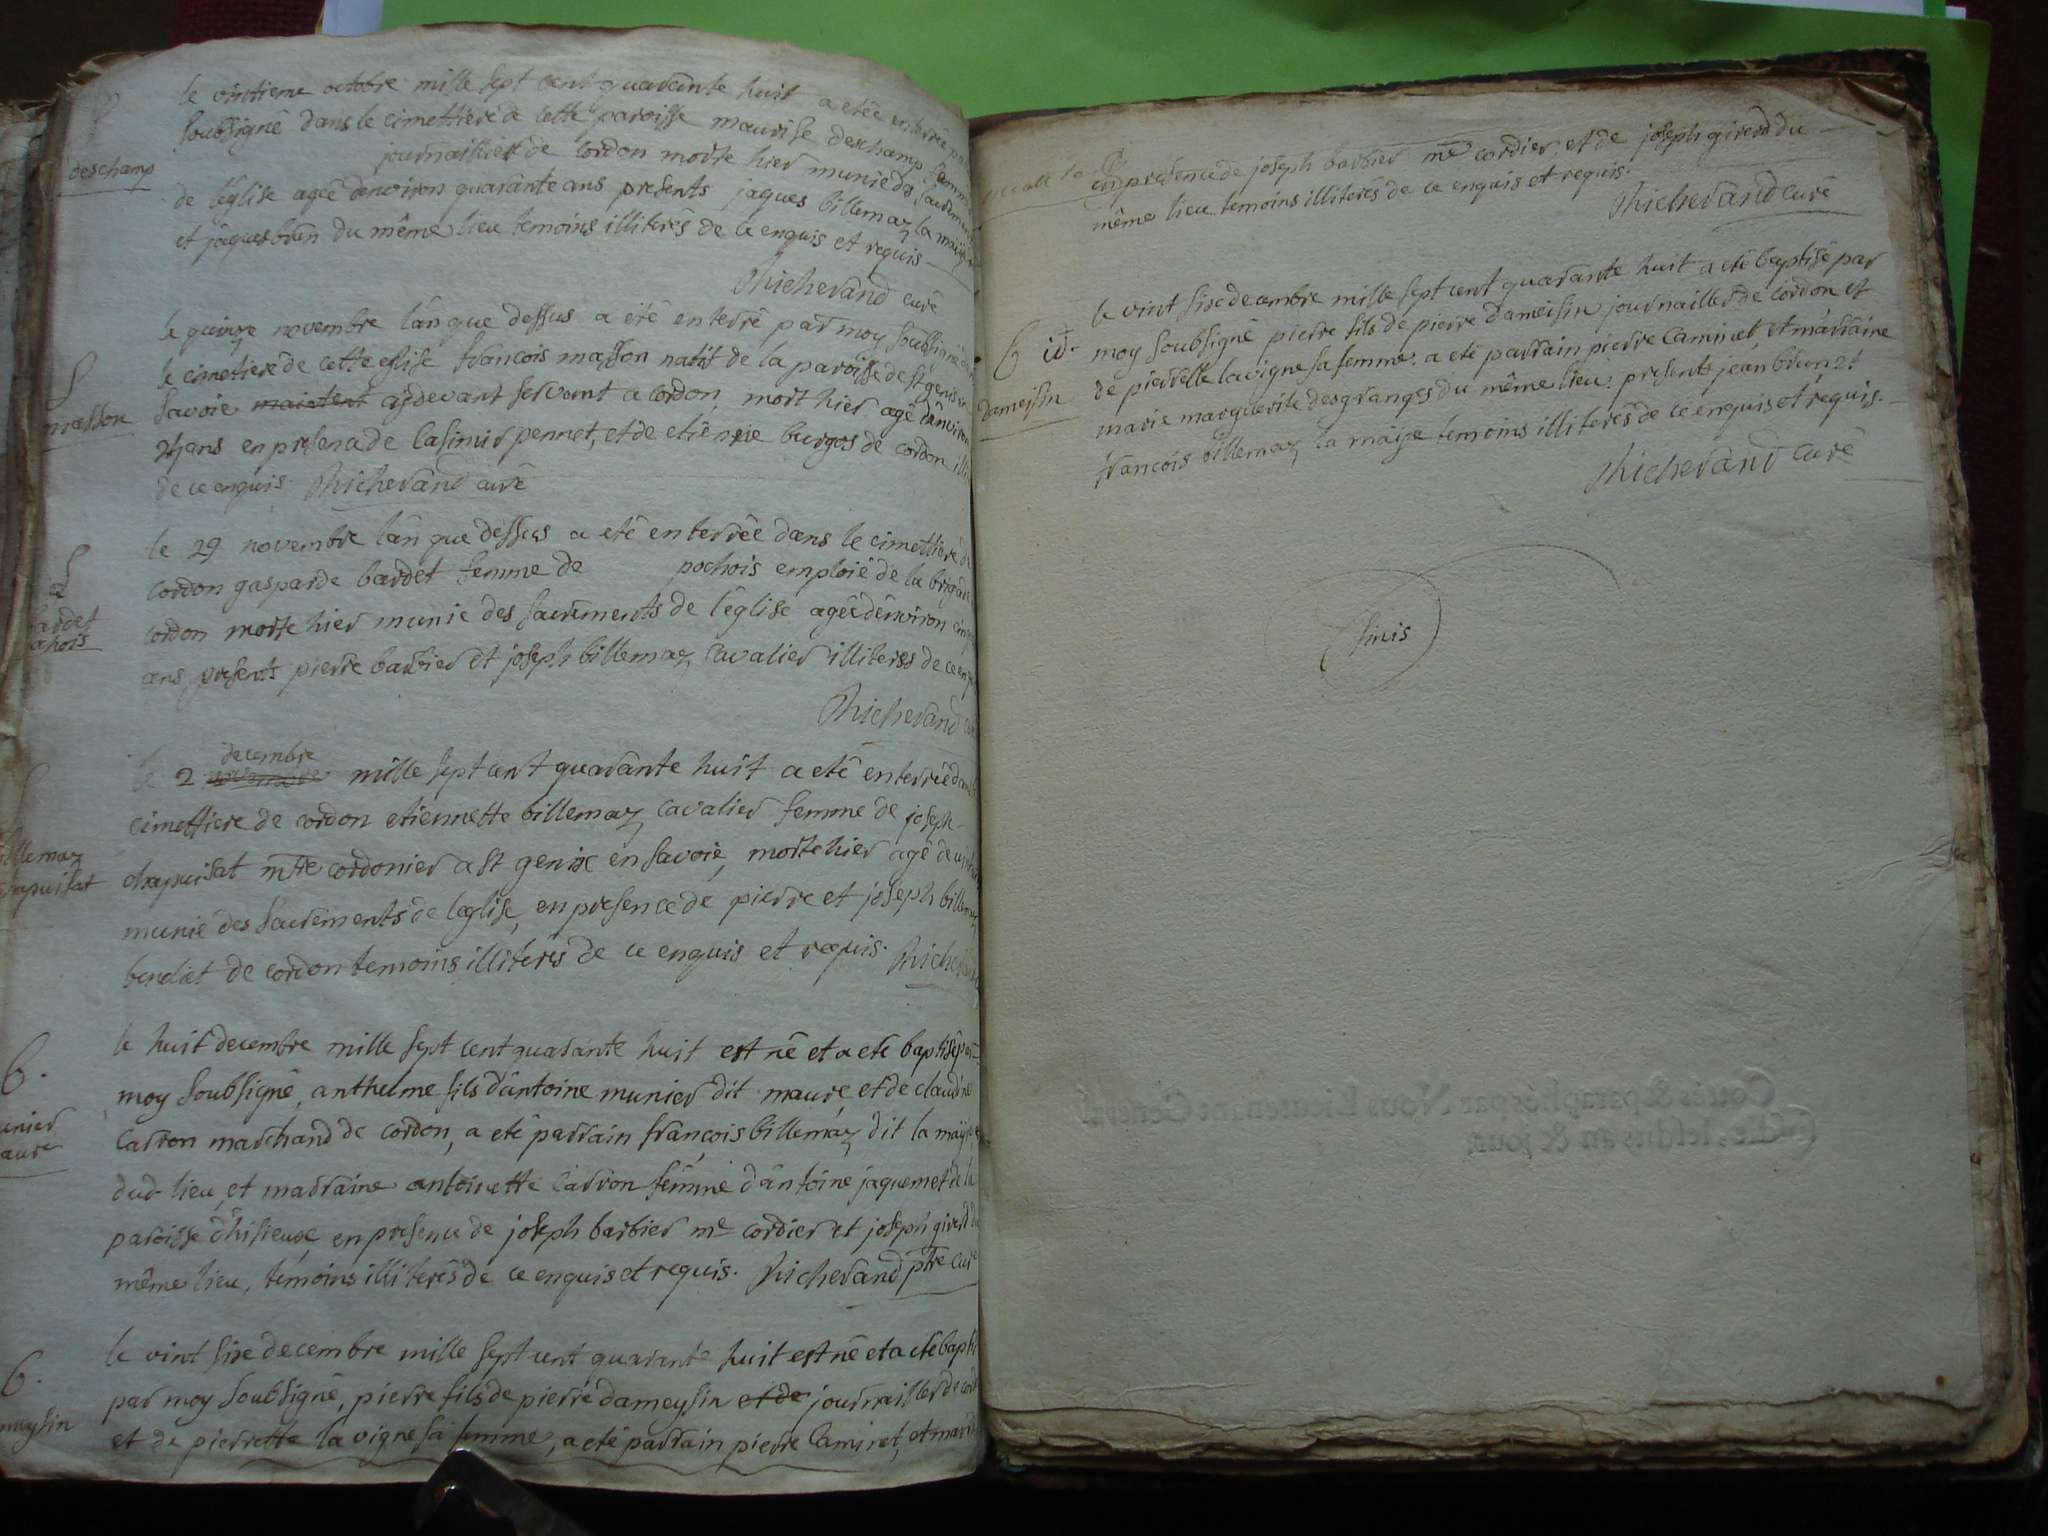 le vintieme octobre mille sept cent quarente huit a etée enterrée
soubsigné dans le cimettiere de cette paroisse maurise deschamp femme
deschamp
journaillier de cordon morte hier munie des sacrements
de l'eglise agée d'environ quarante ans presents jaques billemaz la maije
et jaques brun du même lieu temoins illiterés de ce enquis et requis
Richerand curé
le quinze novembre l'an que dessus a été enterré par moy soubsigné
le cimetiere de cette eglise francois masson natif de la paroisse de st genis
masson
savoie maintent cydevant servant a cordon, mort hier agé d'environ
ans en presence de Casimir pennet, et de etienne burgos de cordon
de ce enquis Richerand curé
le 29 novembre l'an que dessus a eté enterrée dans le cimettiere de
cordon gasparde bardet femme de pochois emploié de la brigade
cordon morte hier munie des sacrements de l'église agée d'environ
ans, presents pierre barbier et joseph billemaz cavalier illiterés de ce
Richerand
decembre
le 2 mille sept cent quarante huit a eté enterrée
cimettiere de cordon etiennette billemaz cavalier femme de joseph
chapuisat mtre cordonier a st genix en savoie, morte hier agé de
munie des sacrements de l'eglise, en presence de pierre et joseph
benoiet de cordon temoins illiterés de ce enquis et requis.
le huit decembre mille sept cent quarante huit est né et a eté baptisé par
b.
moy soubsigné, anthelme fils d'antoine munier dit maure, et de claudine
Carron marchand de cordon, a eté parrain francois billemaz dit la maije
dud. lieu, et marraine antoinette Carron femme d'antoine jaquemet de la
paroisse d'hisieux en presence de joseph barbier me cordier et joseph girerd du
même lieu, temoins illiterés de ce enquis et requis. Richerand ptre curé
le vint six decembre mille sept cent quarante huit est né et a eté
b.
par moy soubsigné, pierre fils de pierre dameysin et de journaillier de
et de pierrette la vigne sa femme, a eté parrain pierre Caminet, et
en presence de joseph barbier me cordier, et de joseph girerd du
même lieu temoins illiterés de ce enquis et requis.
Richerand curé
le vint six decembre mille sept cent quarante huit a eté baptisé par
b id.
moy soubsigné pierre fils de pierre dameisin journaillier de cordon et
dameisin
de pierrette lavigne sa femme. a eté parrain pierre Caminet, et marraine
marie marguerite desgranges du même lieu. presents jean brun et
francois billemaz la maije temoins illiterés de ce enquis et requis.
Richerand curé
finis